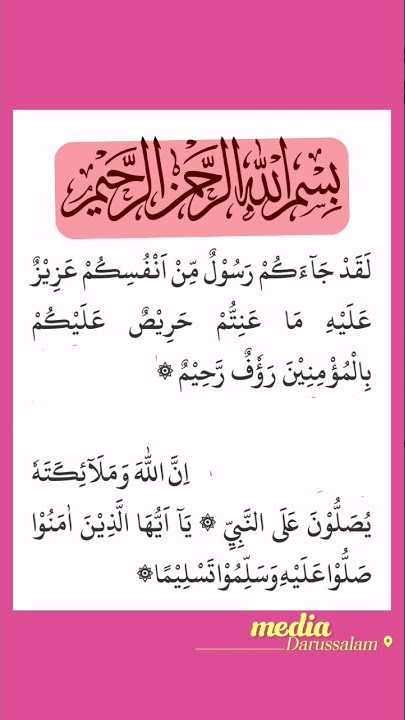 بِسْمِ اللهِ الرَّحْمٰنِ الرَّحِيْمِ
لَقَدْ جَآءَكُمْ رَسُوْلٌ مِّنْ اَنْفُسِكُمْ عَزِيْزٌ
عَلَيْهِ مَا عَنِتُّمْ حَرِيْصٌ عَلَيْكُمْ
بِالْمُؤْمِنِيْنَ رَؤُفٌ رَّحِيْمٌ ۞
اِنَّ اللهَ وَمَلَآئِكَتَهٗ
يُصَلُّوْنَ عَلَى النَّبِيِّ ۞ يَآ اَيُّهَا الَّذِيْنَ اٰمَنُوْا
صَلُّوْا عَلَيْهِ وَسَلِّمُوْا تَسْلِيْمًا ۞
media
Darussalam